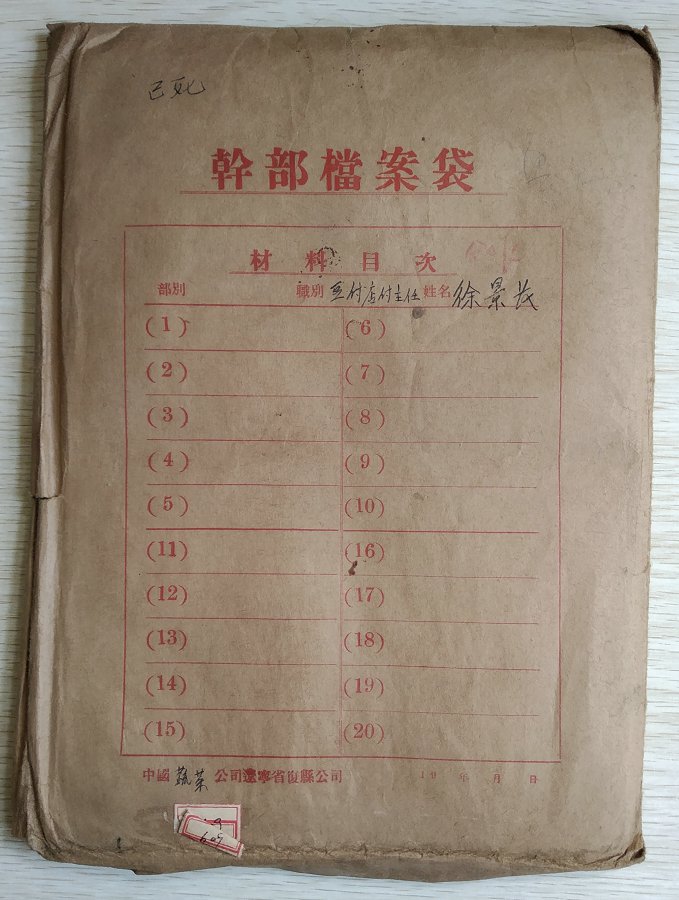 已死
幹部檔案袋
材料目次
部別 職別 豆付店付主任 姓名 徐景茂
(1) (6)
(2) (7)
(3) (8)
(4) (9)
(5) (10)
(11) (16)
(12) (17)
(13) (18)
(14) (19)
(15) (20)
中國蔬菜公司遼寧省復縣公司 19 年 月 日